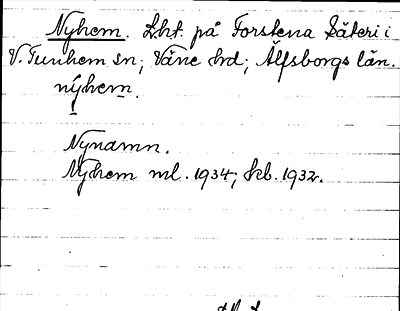 Nyhem. Lht. på Forstena Säteri i
V. Tunhem sn; Väne hd; Älfsborgs län.
nýhem.
Nynamn.
Nyhem ml. 1934; kb. 1932.